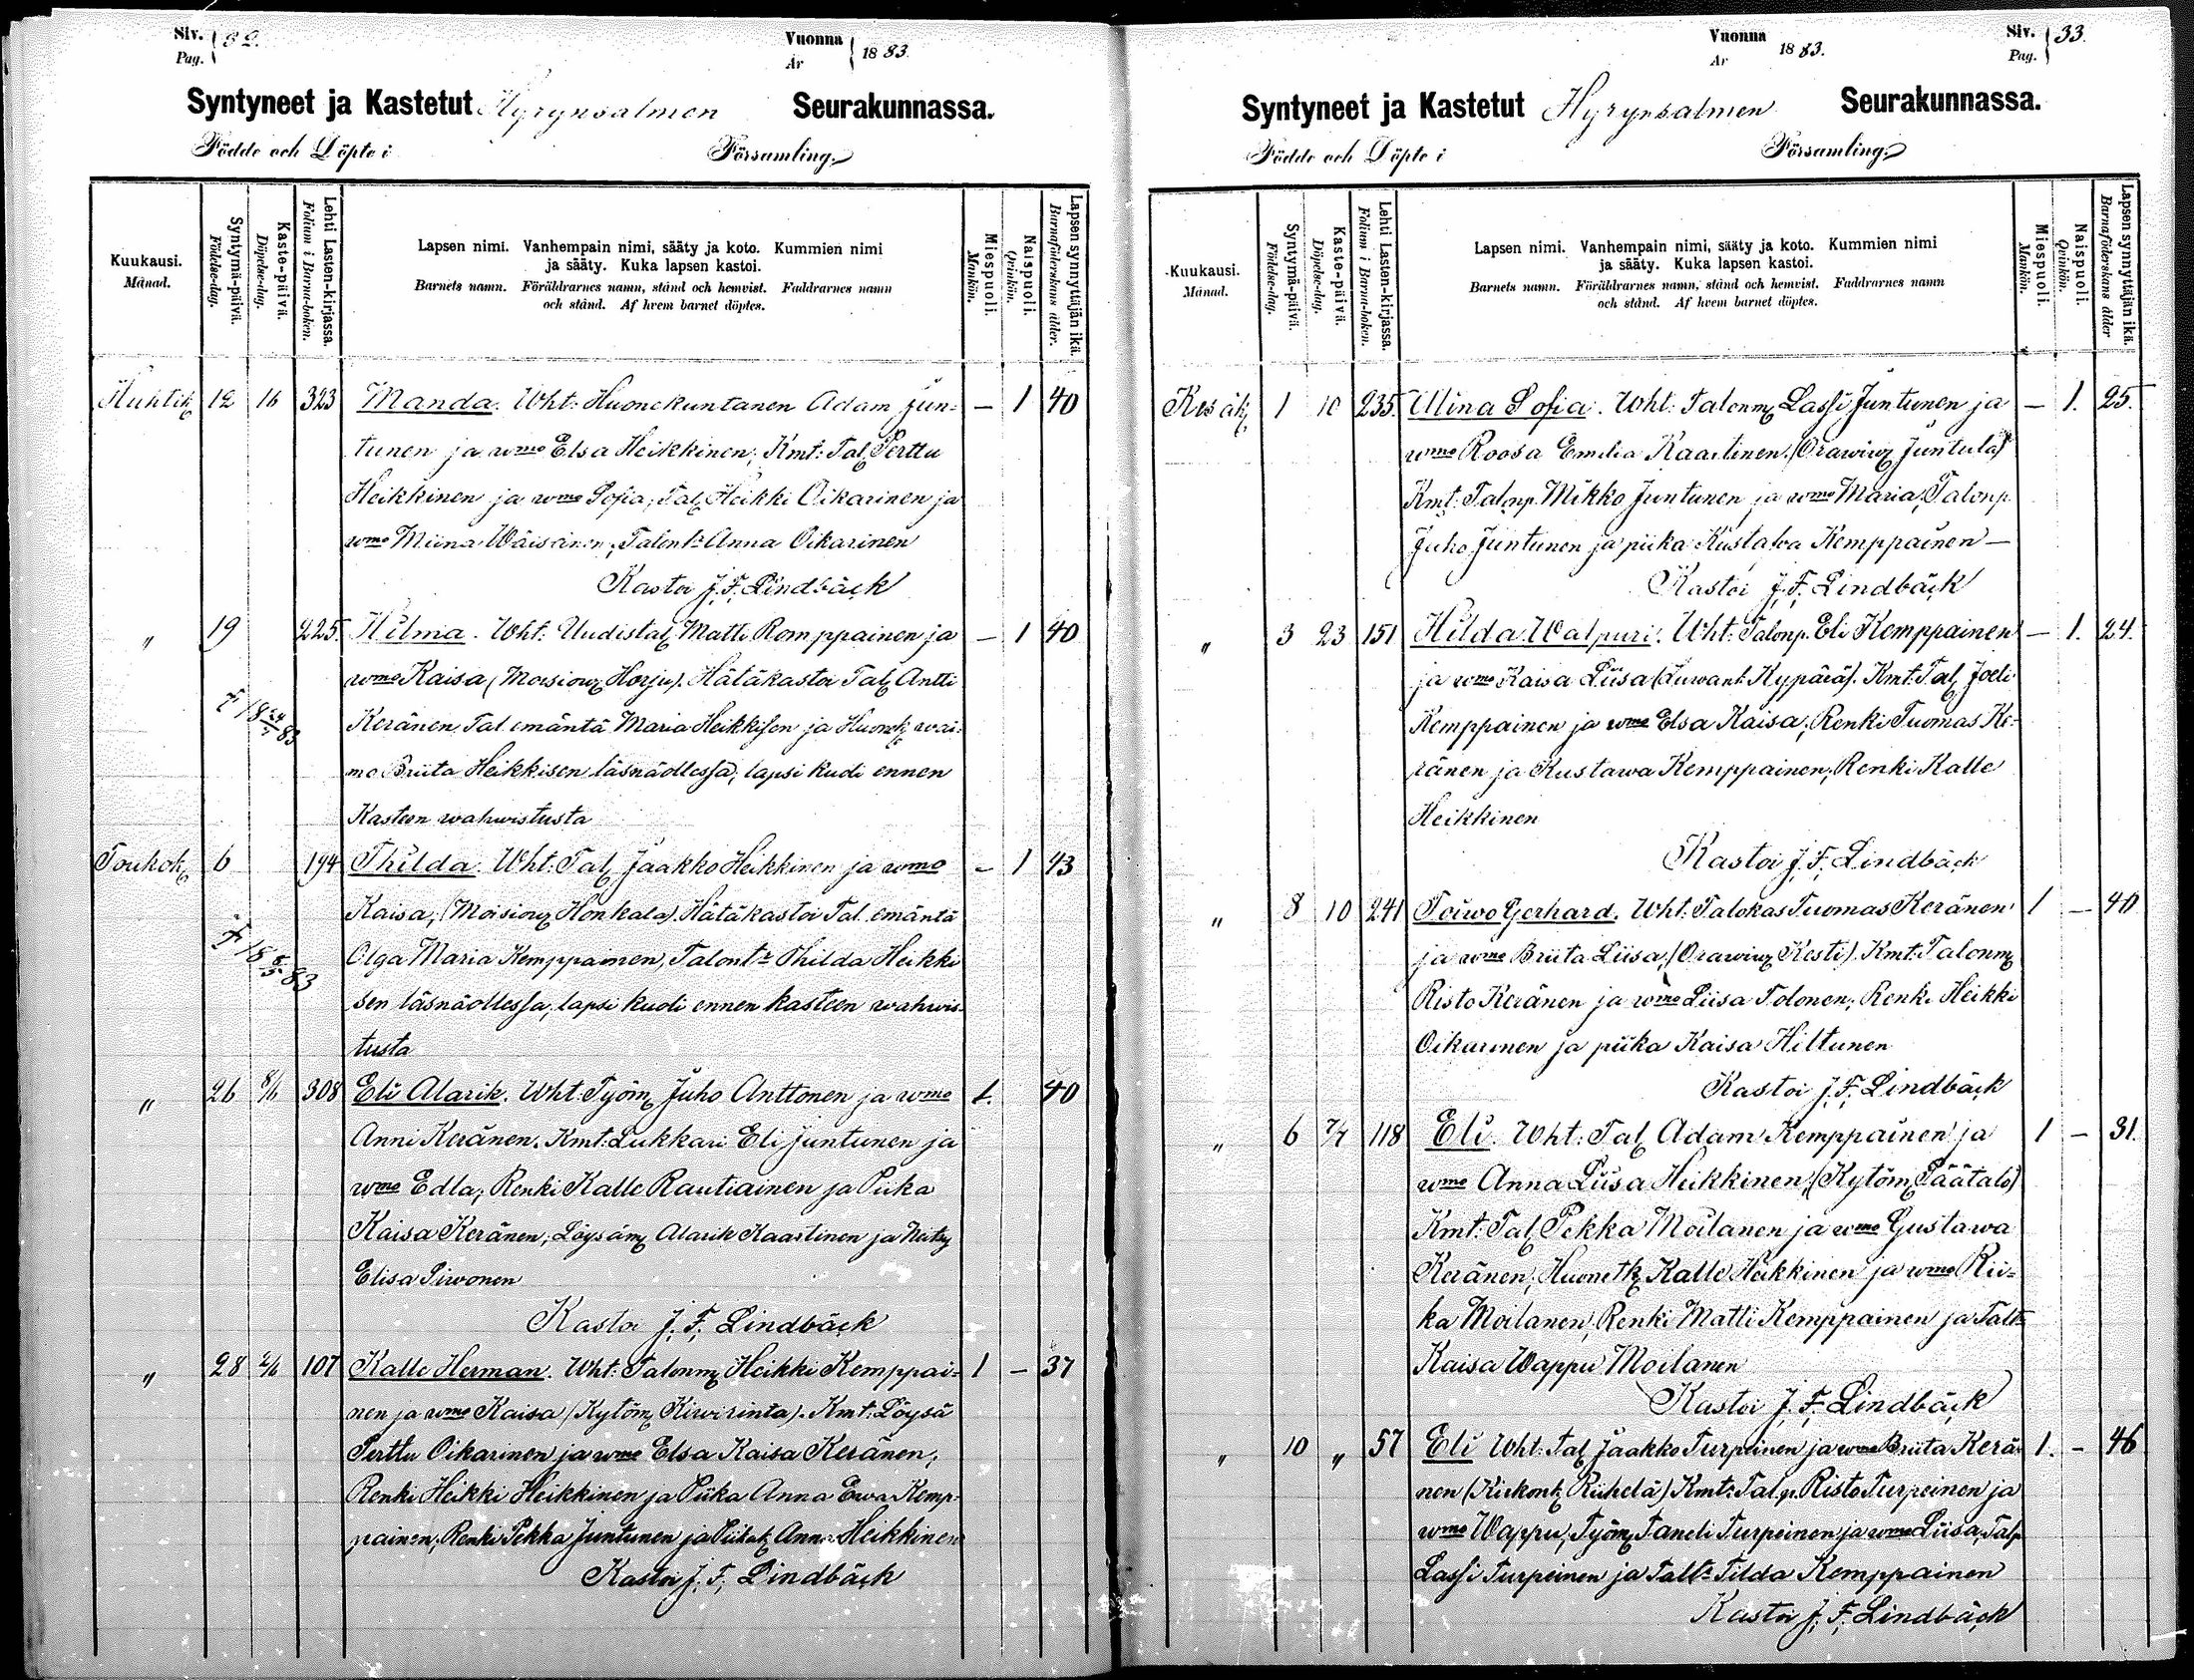 Siv. 32.
Pag.
Vuonna 1883.
År
Syntyneet ja Kastetut Hyrynsalmen Seurakunnassa.
Födde och Döpte i Församling.
Kuukausi.
Månad.
Syntymä-päivä.
Födelse-dag.
Kaste-päivä.
Döpelse-dag.
Lehti Lasten-kirjassa.
Folium i Barna-boken.
Lapsen nimi. Vanhempain nimi, sääty ja koto. Kummien nimi
ja sääty. Kuka lapsen kastoi.
Barnets namn. Föräldrarnes namn, stånd och hemvist. Faddrarnes namn
och stånd. Af hvem barnet döptes.
Miespuoli.
Mankön.
Naispuoli.
Qvinkön.
Lapsen synnyttäjän ikä.
Barnaföderskans ålder.
Huhtik 12 16 323 Manda. Wht: Huonekuntanen Adam Jun- — 1 40
tunen ja wmo Elsa Heikkinen; Kmt: Tal Perttu
Heikkinen ja wmo Sofia; Tal Heikki Oikarinen ja
wmo Miina Wäisäinen; Talont: Anna Oikarinen
Kastoi J. F. Lindbäck
" 19 225. Hilma. Wht: Uudistal Matti Romppainen ja — 1 40
wmo Kaisa (Moisiow Horju). Hätäkastoi Tal Antti
† 18 24/4 83 Keränen Tal emäntä Maria Heikkisen ja Huonek wai-
mo Briita Heikkisen läsnäollessa; lapsi kuoli ennen
Kasteen wahwistusta
Toukok 6 194 Thilda. Wht: Tal Jaakko Heikkinen ja wmo — 1 43
Kaisa; (Moisiow Honkala). Hätäkastoi Tal. emäntä
Olga Maria Kemppainen, Talont: Thilda Heikki
sen läsnäollessa, lapsi kuoli ennen kasteen wahwis-
tusta
" 26 8/6 308 Eli Alarik. Wht: Työm Juho Anttonen ja wmo 1. 40
Anni Keränen. Kmt: Lukkari Eli Juntunen ja
wmo Edla; Renki Kalle Rautiainen ja Piika
Kaisa Keränen; Löysäm Alarik Kaartinen ja
Elisa Piwonen
Kastoi J. F. Lindbäck
" 28 2/6 107 Kalle Herman. Wht: Talonm Heikki Kemppai- 1 — 37
nen ja wmo Kaisa (Kytöm Kiwirinta). Kmt: Löysä
Perttu Oikarinen ja wmo Elsa Kaisa Keränen;
Renki Heikki Heikkinen ja Piika Anna Ewa Kemp-
painen; Renki Pekka Juntunen ja Anna Heikkinen
Kastoi J. F. Lindbäck
Vuonna 1883.
År
Siv. 33.
Pag.
Syntyneet ja Kastetut Hyrynsalmen Seurakunnassa.
Födde och Döpte i Församling.
Kuukausi.
Månad.
Syntymä-päivä.
Födelse-dag.
Kaste-päivä.
Döpelse-dag.
Lehti Lasten-kirjassa.
Folium i Barna-boken.
Lapsen nimi. Vanhempain nimi, sääty ja koto. Kummien nimi
ja sääty. Kuka lapsen kastoi.
Barnets namn. Föräldrarnes namn, stånd och hemvist. Faddrarnes namn
och stånd. Af hvem barnet döptes.
Miespuoli.
Mankön.
Naispuoli.
Qvinkön.
Lapsen synnyttäjän ikä.
Barnaföderskans ålder
Kesäk 1 10 235. Miina Sofia. Wht: Talonm Lassi Juntunen ja — 1. 25.
wmo Roosa Emilia Kaartinen. (Orawiw Juntula)
Kmt: Talonp. Mikko Juntunen ja wmo Maria, Talonp.
Juho Juntunen ja piika Kustafwa Kemppainen —
Kastoi J. F. Lindbäck
" 3 23 151 Hilda Walpuri. Wht: Talonp. Eli Kemppainen — 1. 24.
ja wmo Kaisa Liisa (Luwant. Kypärä). Kmt: Tal Joeli
Kemppainen ja wmo Elsa Kaisa; Renki Tuomas Ke-
ränen ja Kustawa Kemppainen; Renki Kalle
Heikkinen
Kastoi J. F. Lindbäck
" 8 10 241 Toiwo Gerhard. Wht: Talokas Tuomas Keränen 1 — 40
ja wmo Briita Liisa, (Orawiw Kesti). Kmt: Talonm
Risto Keränen ja wmo Liisa Tolonen; Renki Heikki
Oikarinen ja piika Kaisa Hiltunen
Kastoi J. F. Lindbäck
" 6 7/7 118 Eli. Wht: Tal Adam Kemppainen ja 1 — 31.
wmo Anna Liisa Heikkinen, (Kytöm Päätalo)
Kmt: Tal Pekka Moilanen ja wmo Gustawa
Keränen; Huonetk Kalle Heikkinen ja wmo Rii-
ka Moilanen; Renki Matti Kemppainen ja Talt:
Kaisa Wappu Moilanen
Kastoi J. F. Lindbäck
" 10 " 57 Eli Wht: Tal Jaakko Turpeinen ja wmo Briita Kerä- 1. — 46
nen (Kirkonk Riihelä) Kmt: Tal.p. Risto Turpeinen ja
wmo Wappu; Työm Taneli Turpeinen ja wmo Liisa; Talp
Lassi Turpeinen ja Talt: Tilda Kemppainen
Kastoi J. F. Lindbäck